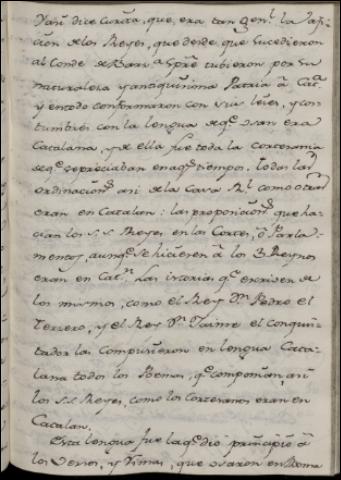 Y así dice Curita, que, era tan Genl. la afi-
cion de los Reyes, que desde que sucedieron
al Conde de Barna. Spre. tubieron por su
naturaleza y antiquisima Patria à Cata.
y en todo conformaron con sus leies, y cos-
tumbres con la lengua de qe. usan era
Catalana, y de ella fue toda la cortesania
de qe. se preciaban en aqs. tiempos. todas las
ordinacions. asi de la Casa Rl. como otras
eran en Catalan: las proposicions. que ha-
cian los S.S. Reyes en las Cortes, ò Parla-
mentos, aunqe. se hiciesen à los 3 Reynos
eran en Catn. Las istorias qe. escriven de
los mismos, como el Rey Dn. Pedro el
Tercero, y el Rey Dn. Jaime el conquis-
tador las compusieron en lengua Cata-
lana todos los Poemas, qe. componian, asi
los S.S. Reyes, como los cortesanos eran en
Catalan.
Esta lengua fue la qe. dió principio à
los versos, y rimas, que usaron en Roma